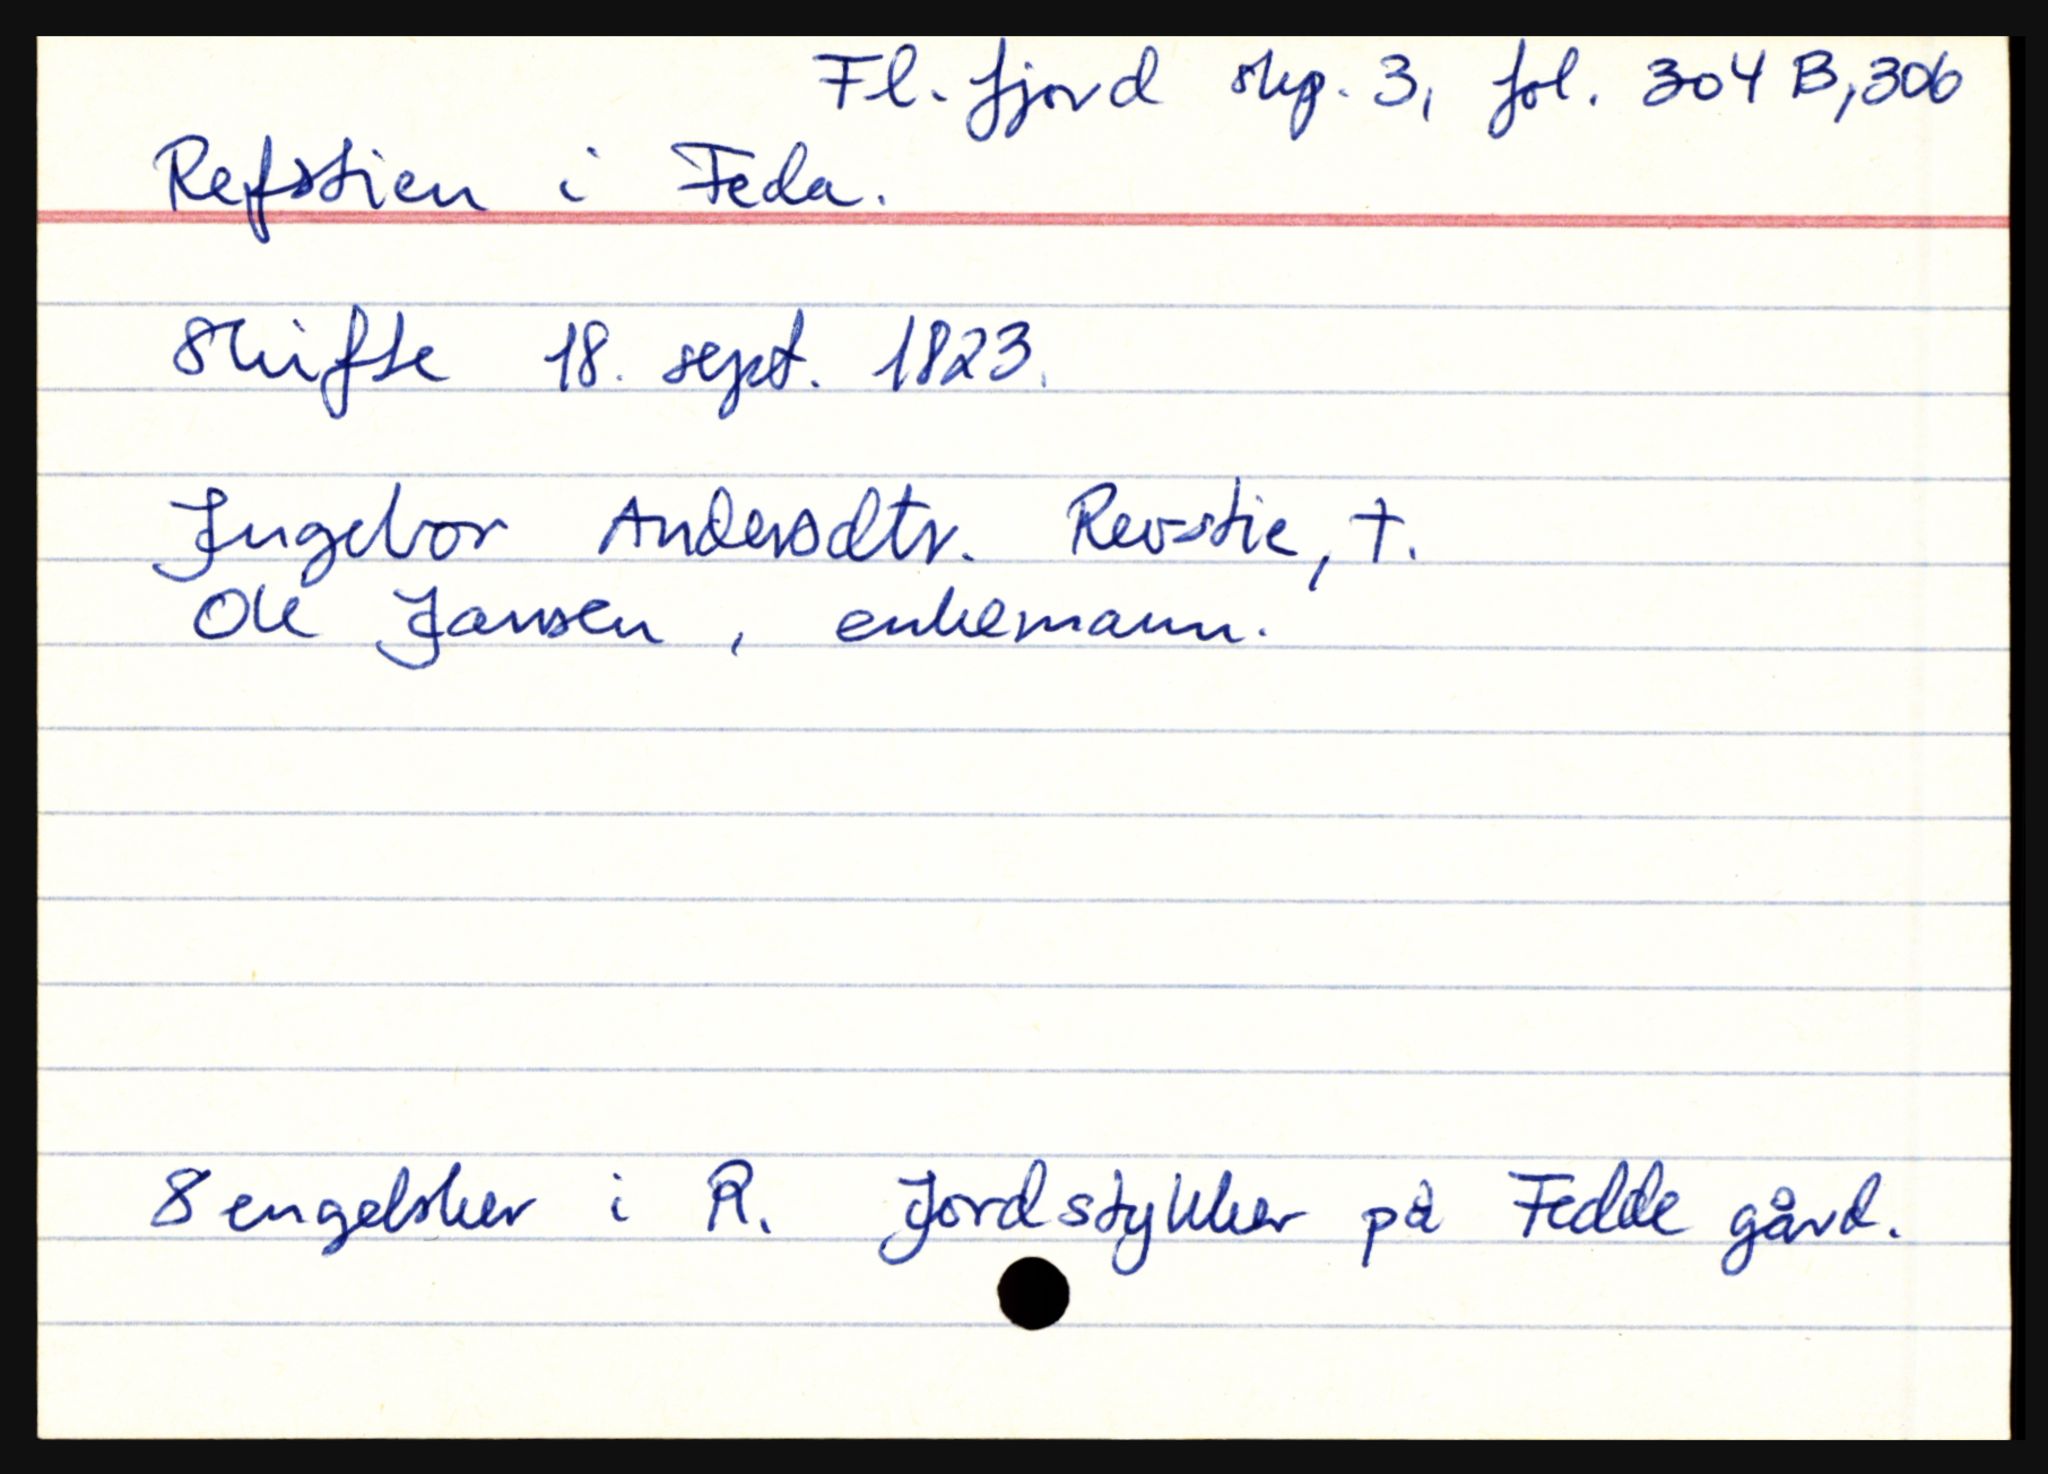 Fl.fjord skp. 3, fol. 304 B, 306
Refstien i Feda.
Skifte 18. sept. 1823.
Ingebor Andersdtr. Revstie, †.
Ole Jansen, enkemann.
8 engelsker i R. Jordstykker på Fedde gård.